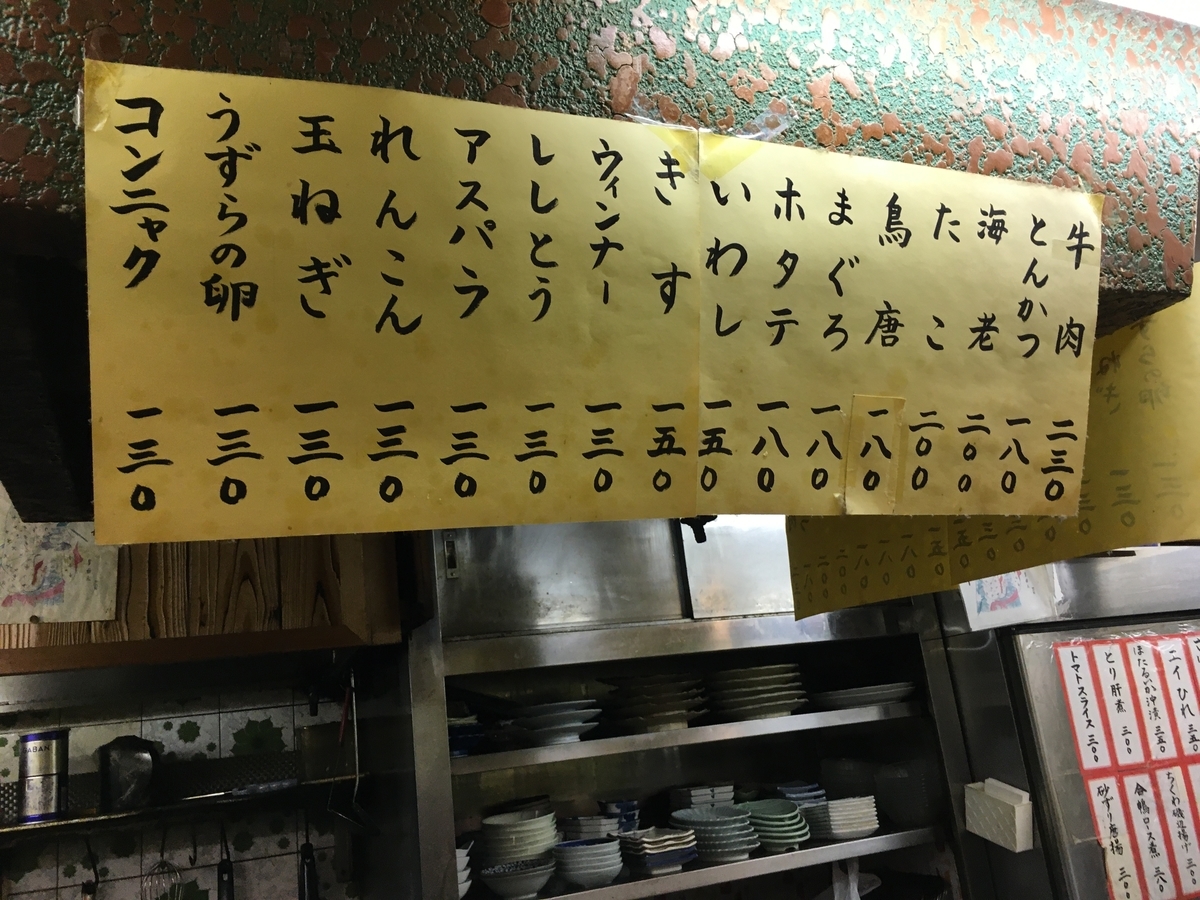 牛肉 二三〇
とんかつ 一八〇
海老 二〇〇
たこ 二〇〇
鳥唐 一八〇
まぐろ 一八〇
ホタテ 一八〇
いわし 一五〇
きす 一五〇
ウィンナー 一三〇
ししとう 一三〇
アスパラ 一三〇
れんこん 一三〇
玉ねぎ 一三〇
うずらの卵 一三〇
コンニャク 一三〇
エイひれ 三五
ほたるいか沖漬 三五〇
とり肝煮 三〇〇
トマトスライス 三〇〇
ちくわ磯辺揚げ 三〇〇
合鴨ロース煮
砂ずり唐揚 三〇〇